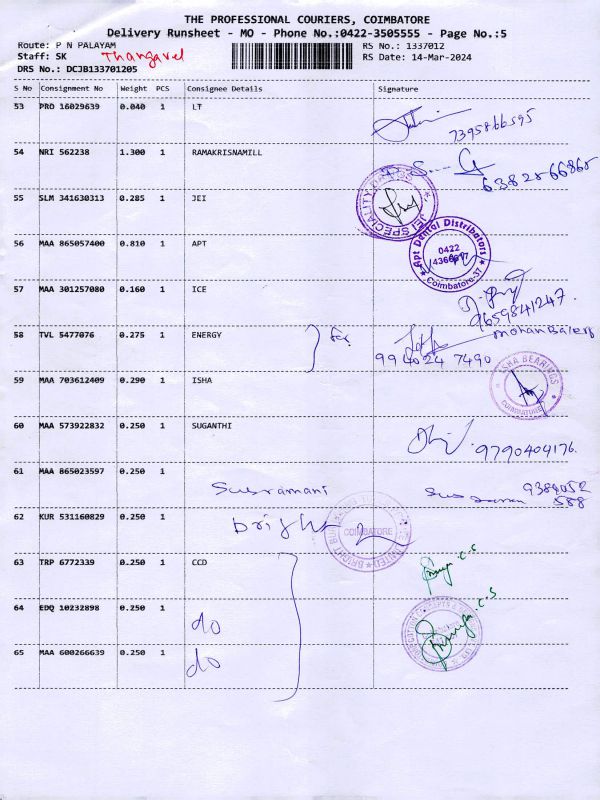 THE PROFESSIONAL COURIERS, COIMBATORE
Delivery Runsheet - MO - Phone No.:0422-3505555 - Page No.:5
Route: P N PALAYAM RS No.: 1337012
Staff: SK Thangavel RS Date: 14-Mar-2024
DRS No.: DCJB133701205
S No Consignment No Weight PCS Consignee Details Signature
53 PRO 16029639 0.040 1 LT
7395866595
54 NRI 562238 1.300 1 RAMAKRISNAMILL
6382866868
55 SLM 341630313 0.285 1 JEI
JEI SPECIALITY
56 MAA 865057400 0.810 1 APT
Apt Dental Distributors
0422
Coimbatore-37
57 MAA 301257080 0.160 1 ICE
9659841247.
58 TVL 5477076 0.275 1 ENERGY
994024 7490
59 MAA 703612409 0.290 1 ISHA
ISHA BEARINGS
COIMBATORE
60 MAA 573922832 0.250 1 SUGANTHI
9790404176.
61 MAA 865023597 0.250 1
Subramani 9384052
588
62 KUR 531160829 0.250 1
COIMBATORE
63 TRP 6772339 0.250 1 CCD
64 EDQ 10232898 0.250 1
do
65 MAA 600266639 0.250 1
do